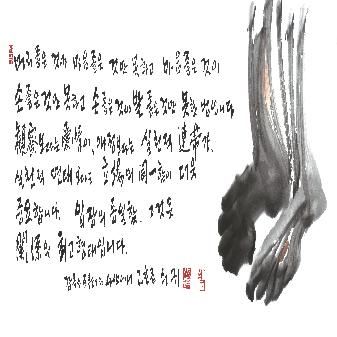 머리좋은 것이 마음좋은 것만 못하고 마음좋은 것이
손좋은것만 못하고 손좋은것이 발 좋은것만 못한 법입니다
觀察보다는 愛情이, 애정보다는 실천적 連帶가,
실천적 연대보다는 立場의 同一함이 더욱
중요합니다. 입장의 동일함, 그것은
關係의 최고형태입니다.